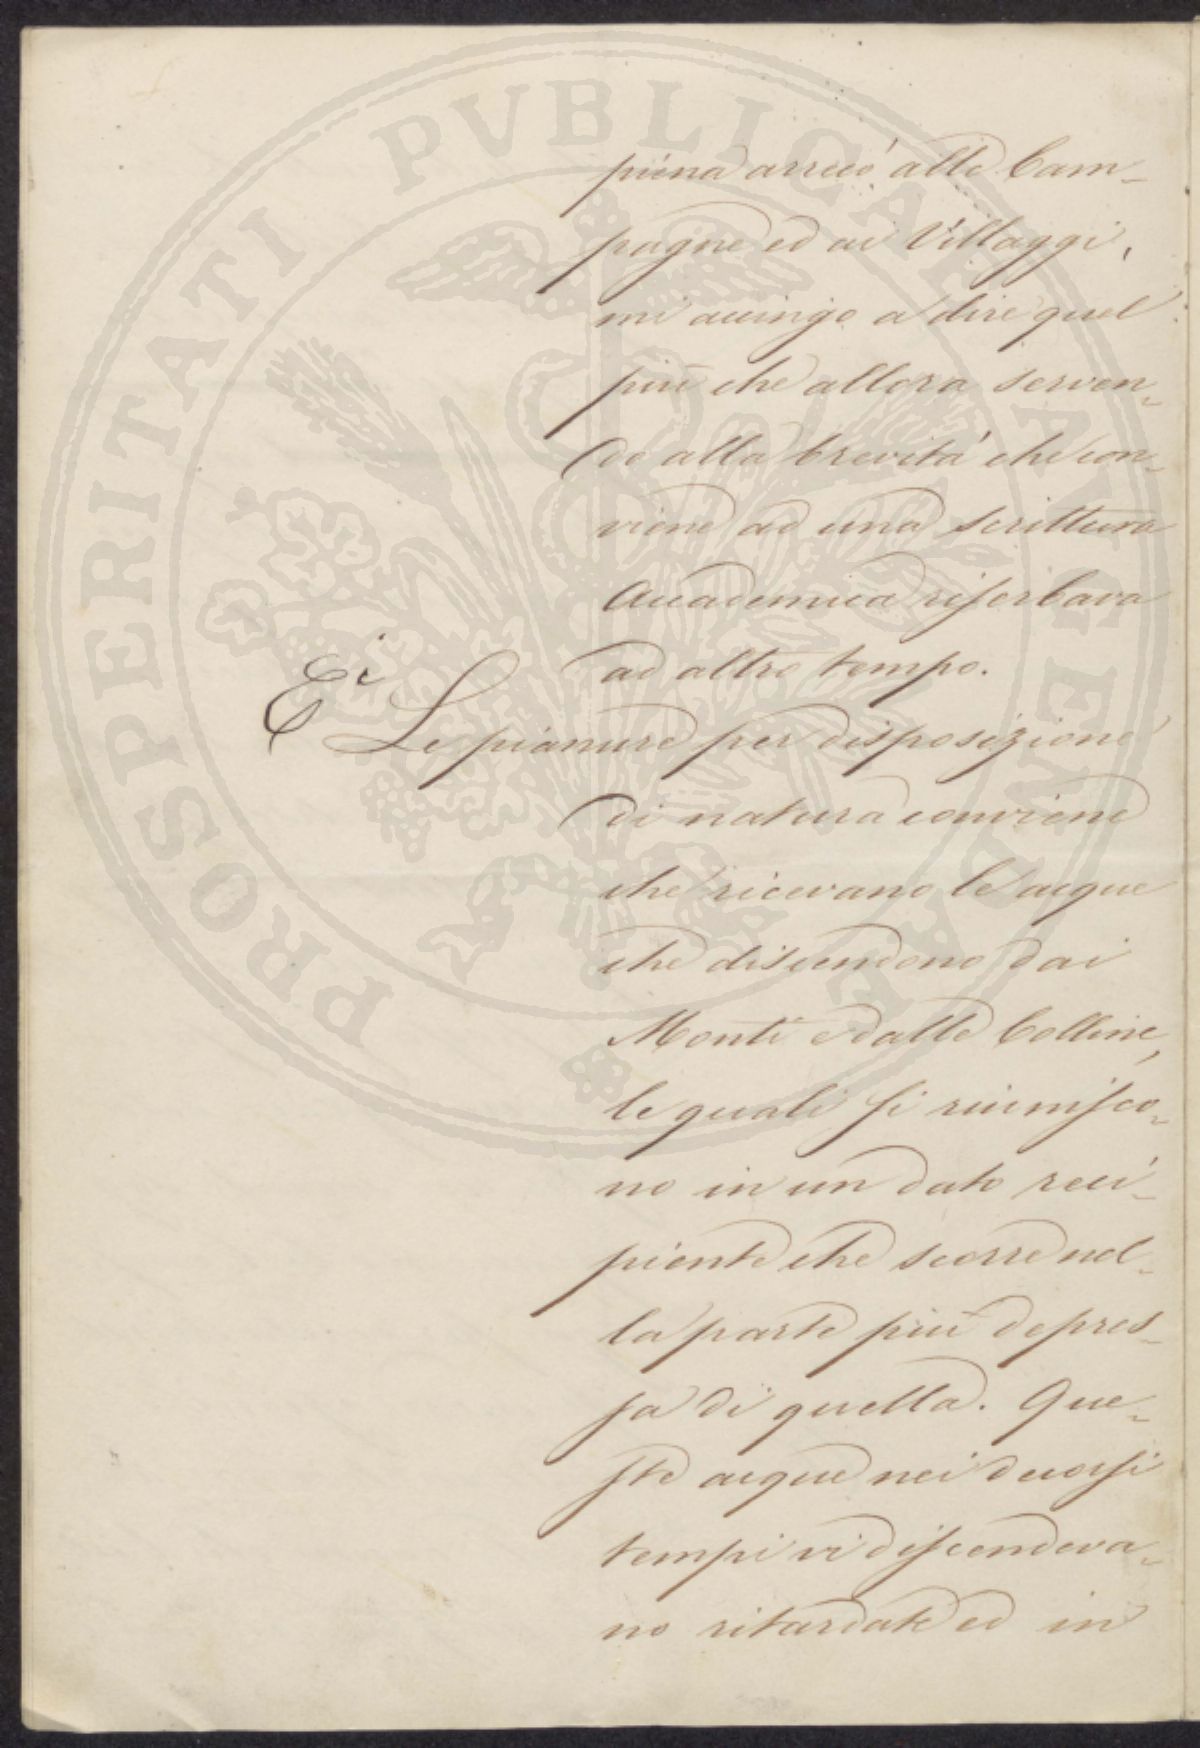 PROSPERITATI PVBLICAE AVGENDAE
piena arrecò alle Cam-
pagne ed ai Villaggi,
mi accingo a dire quel
più che allora serven-
do alla brevità che con-
viene ad una scrittura
Accademica riserbava
ad altro tempo.
E' Le pianure per disposizione
di natura conviene
che ricevano le acque
che discendono dai
Monti e dalle Colline,
le quali si riunisco-
no in un dato reci-
piente che scorre nel-
la parte più depres-
sa di quella. Que-
ste acque nei decorsi
tempi vi discendeva-
no ritardate ed in